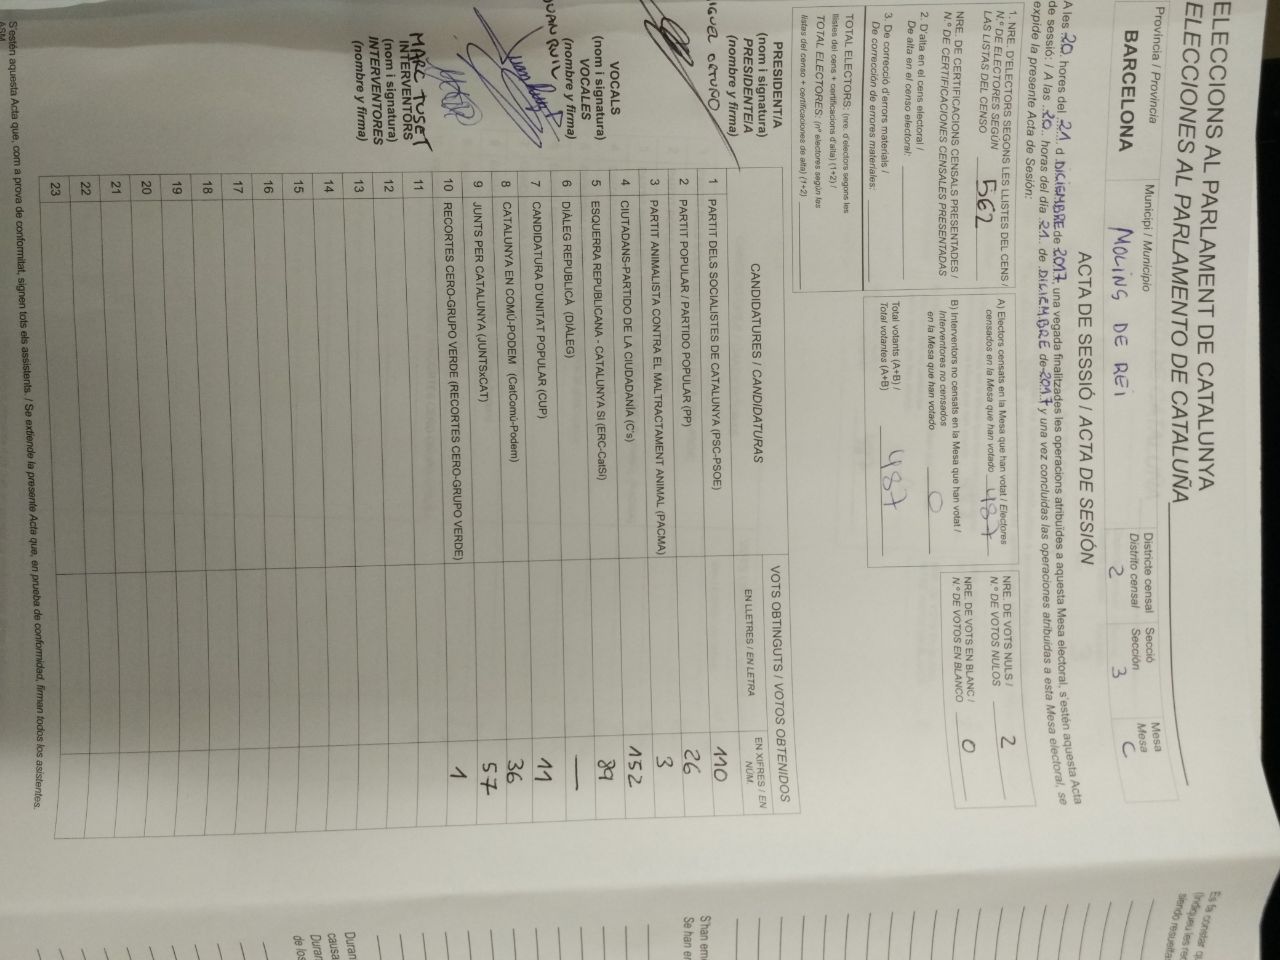 ELECCIONS AL PARLAMENT DE CATALUNYA
ELECCIONES AL PARLAMENTO DE CATALUÑA
Província / Provincia
BARCELONA
Municipi / Municipio
MOLINS DE REI
Districte censal
Distrito censal
2
Secció
Sección
3
Mesa
Mesa
C
ACTA DE SESSIÓ / ACTA DE SESIÓN
A les 20 hores del 21 d DICIEMBRE de 2017, una vegada finalitzades les operacions atribuïdes a aquesta Mesa electoral, s'estén aquesta Acta
de sessió: / A las 20 horas del día 21 de DICIEMBRE de 2017 y una vez concluidas las operaciones atribuidas a esta Mesa electoral, se
expide la presente Acta de Sesión:
1. NRE. D'ELECTORS SEGONS LES LLISTES DEL CENS /
N.º DE ELECTORES SEGÚN
LAS LISTAS DEL CENSO 562
NRE. DE CERTIFICACIONS CENSALS PRESENTADES /
N.º DE CERTIFICACIONES CENSALES PRESENTADAS
2. D'alta en el cens electoral /
De alta en el censo electoral:
3. De correcció d'errors materials /
De corrección de errores materiales:
TOTAL ELECTORS: (nre. d'electors segons les
llistes del cens + certificacions d'alta) (1+2) /
TOTAL ELECTORES: (nº electores según las
listas del censo + certificaciones de alta) (1+2)
A) Electors censats en la Mesa que han votat / Electores
censados en la Mesa que han votado 487
B) Interventors no censats en la Mesa que han votat /
Interventores no censados
en la Mesa que han votado 0
Total votants (A+B) /
Total votantes (A+B) 487
NRE. DE VOTS NULS /
N.º DE VOTOS NULOS 2
NRE. DE VOTS EN BLANC /
N.º DE VOTOS EN BLANCO 0
CANDIDATURES / CANDIDATURAS
VOTS OBTINGUTS / VOTOS OBTENIDOS
EN LLETRES / EN LETRA
EN XIFRES / EN NÚM.
1 PARTIT DELS SOCIALISTES DE CATALUNYA (PSC-PSOE) 110
2 PARTIT POPULAR / PARTIDO POPULAR (PP) 26
3 PARTIT ANIMALISTA CONTRA EL MALTRACTAMENT ANIMAL (PACMA) 3
4 CIUTADANS-PARTIDO DE LA CIUDADANÍA (C's) 152
5 ESQUERRA REPUBLICANA - CATALUNYA SÍ (ERC-CatSí) 89
6 DIÀLEG REPUBLICÀ (DIÀLEG) —
7 CANDIDATURA D'UNITAT POPULAR (CUP) 11
8 CATALUNYA EN COMÚ-PODEM (CatComú-Podem) 36
9 JUNTS PER CATALUNYA (JUNTSxCAT) 57
10 RECORTES CERO-GRUPO VERDE (RECORTES CERO-GRUPO VERDE) 1
11
12
13
14
15
16
17
18
19
20
21
22
23
PRESIDENT/A
(nom i signatura)
PRESIDENTE/A
(nombre y firma)
VOCALS
(nom i signatura)
VOCALES
(nombre y firma)
MARC TUSET
INTERVENTORS
(nom i signatura)
INTERVENTORES
(nombre y firma)
S'estén aquesta Acta que, com a prova de conformitat, signen tots els assistents. / Se extiende la presente Acta que, en prueba de conformidad, firman todos los asistentes.
Es fa constar
(Indiqueu les
siendo
S'han
Se han
Duran
causa
Duran
de los